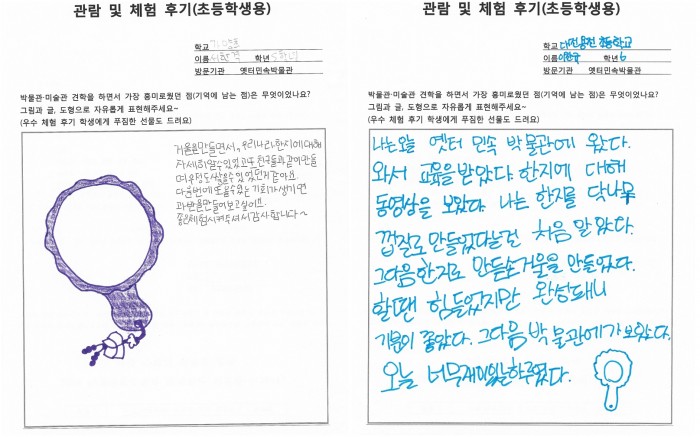 관람 및 체험 후기(초등학생용)
학교
이름 학년 5학년
방문기관 옛터민속박물관
박물관·미술관 견학을 하면서 가장 흥미로웠던 점(기억에 남는 점)은 무엇이었나요?
그림과 글, 도형으로 자유롭게 표현해주세요~
(우수 체험 후기 학생에게 푸짐한 선물도 드려요)
거울을만들면서, 우리나라 한지에 대해
자세히알수있었고 또 친구들과같이만들
며 우정도쌓을수있었던거같아요
다음번에 또 올수있는 기회가생기면
과반을만들어보고싶어요.
좋은체험시켜주셔서감사합니다~
관람 및 체험 후기(초등학생용)
학교 대전용전 초등학교
이름 학년 6
방문기관 옛터민속박물관
박물관·미술관 견학을 하면서 가장 흥미로웠던 점(기억에 남는 점)은 무엇이었나요?
그림과 글, 도형으로 자유롭게 표현해주세요~
(우수 체험 후기 학생에게 푸짐한 선물도 드려요)
나는오늘 옛터 민속 박물관에 왔다.
와서 교육을받았다. 한지에 대해
동영상을 보았다. 나는 한지를 닥나무
껍질로만들었다는걸 처음 알았다.
그다음한지로 만들손거울을만들었다.
할땐 힘들었지만 완성돼니
기분이 좋았다. 그다음박물관에가보았다.
오늘 너무재미있는하루였다.